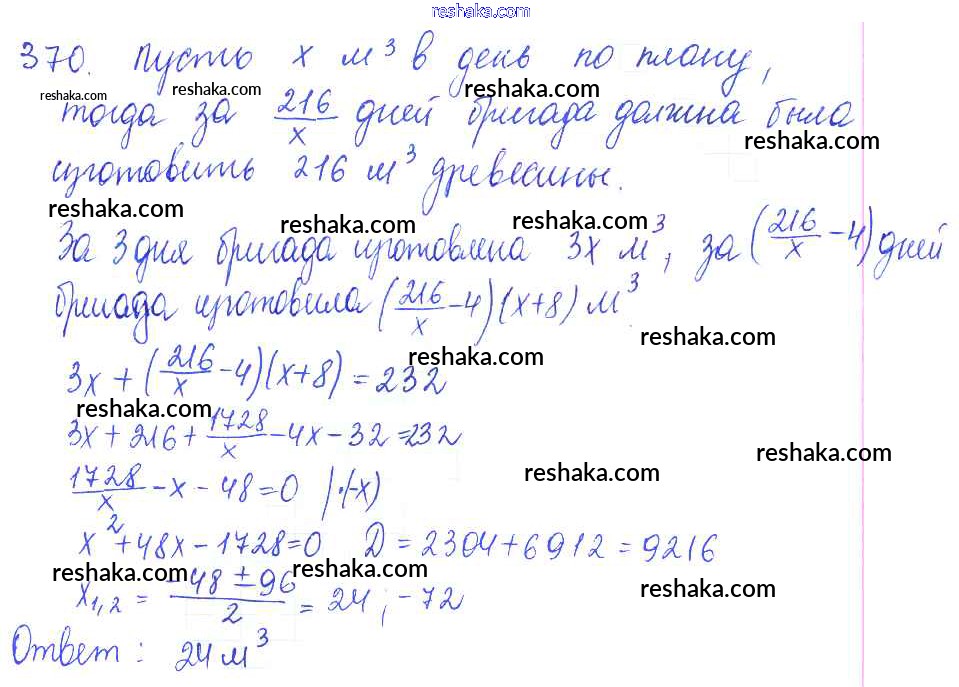 reshaka.com
370. Пусть x м³ в день по плану,
reshaka.com reshaka.com reshaka.com
тогда за 216/x дней бригада должна была
reshaka.com
изготовить 216 м³ древесины.
reshaka.com reshaka.com reshaka.com
За 3 дня бригада изготовлена 3x м³, за (216/x − 4) дней
бригада изготовила (216/x − 4)(x+8) м³
reshaka.com
reshaka.com
3x + (216/x − 4)(x+8) = 232
reshaka.com
3x + 216 + 1728/x − 4x − 32 = 232
reshaka.com
reshaka.com
1728/x − x − 48 = 0 |·(−x)
x² + 48x − 1728 = 0 D = 2304 + 6912 = 9216
reshaka.com reshaka.com
reshaka.com
x₁,₂ = (−48 ± 96)/2 = 24 ; −72
Ответ: 24 м³